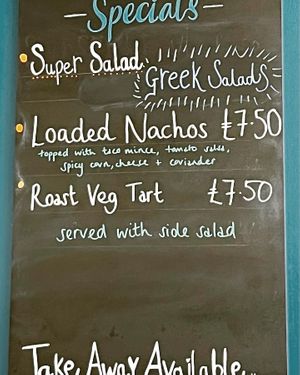 - Specials -
Super Salad
Greek Salads
Loaded Nachos £7.50
topped with taco mince, tomato salsa,
spicy corn, cheese + coriander
Roast Veg Tart £7.50
served with side salad
Take Away Available